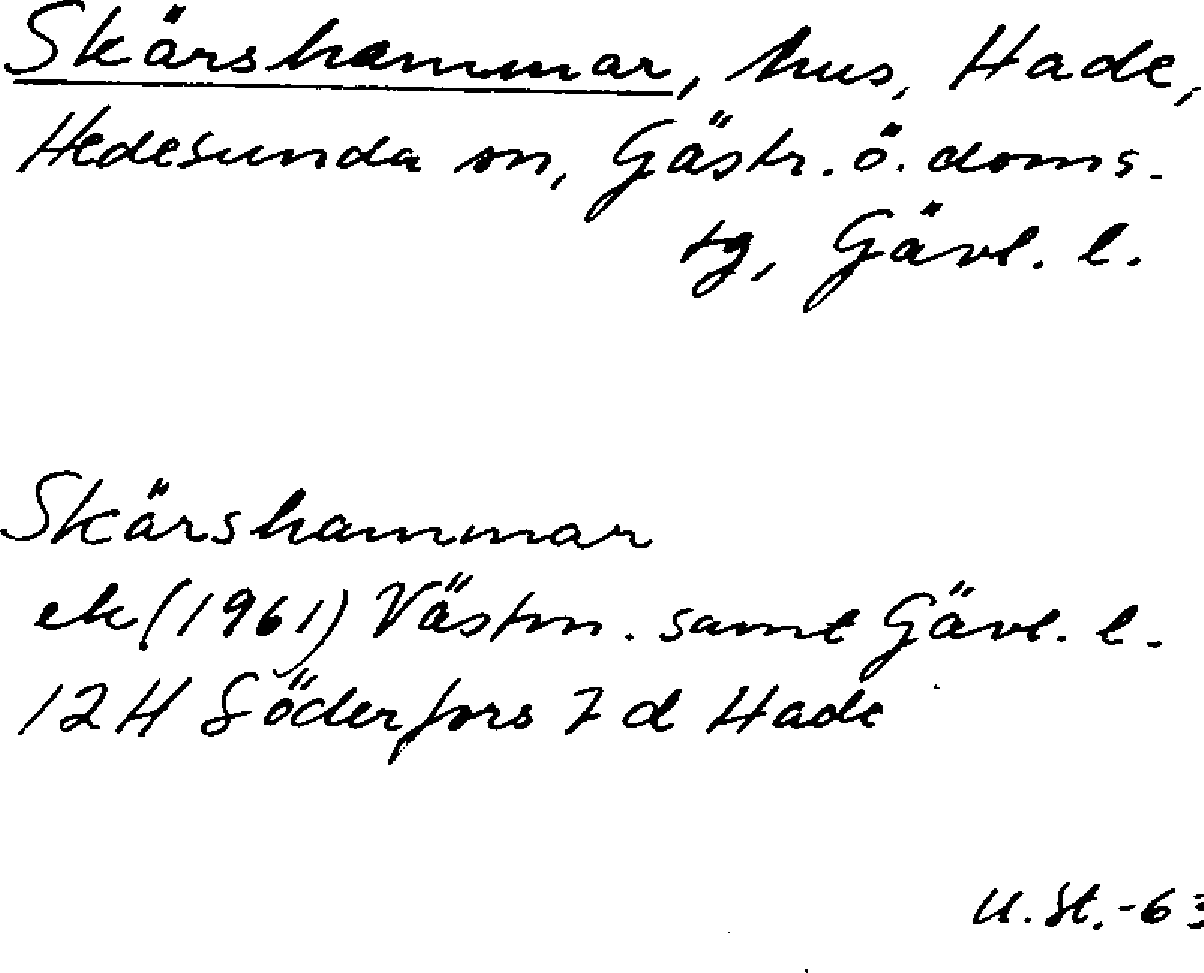 Skärshammar, hus, Hade,
Hedesunda sn, Gästr. ö. doms.
tg, Gävl. l.
Skärshammar
ek (1961) Västm. samt Gävl. l.
12H Söderfors 7 d Hade
U. St. -63